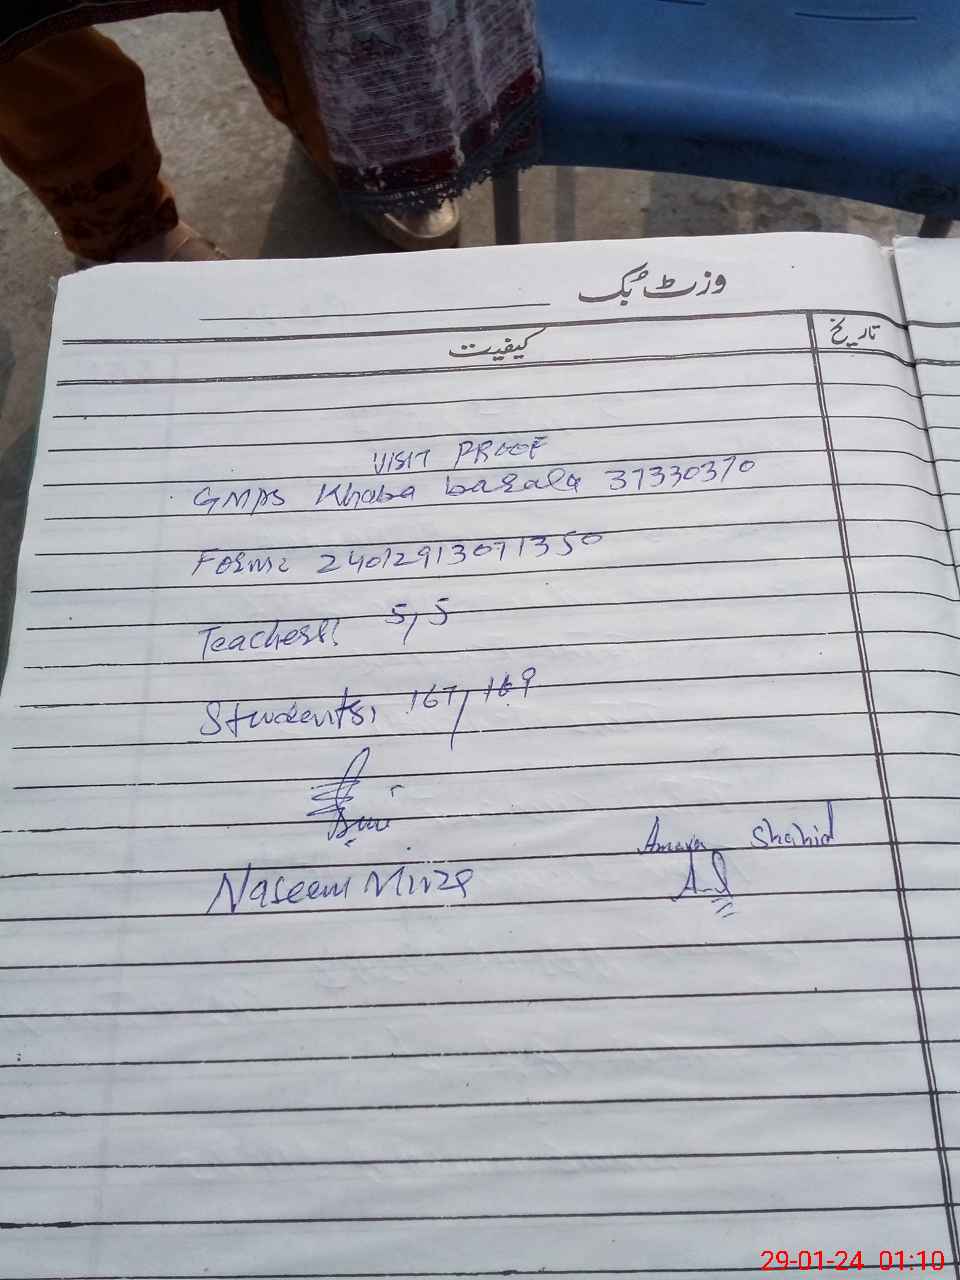 وزٹ بک
کیفیت
تاریخ
VISIT PROOF
GMPS Khaba barala 37330370
Form: 24012913071350
Teachers: 5/5
Students: 167/169
Naseem Mirza
Shahid
29-01-24 01:10